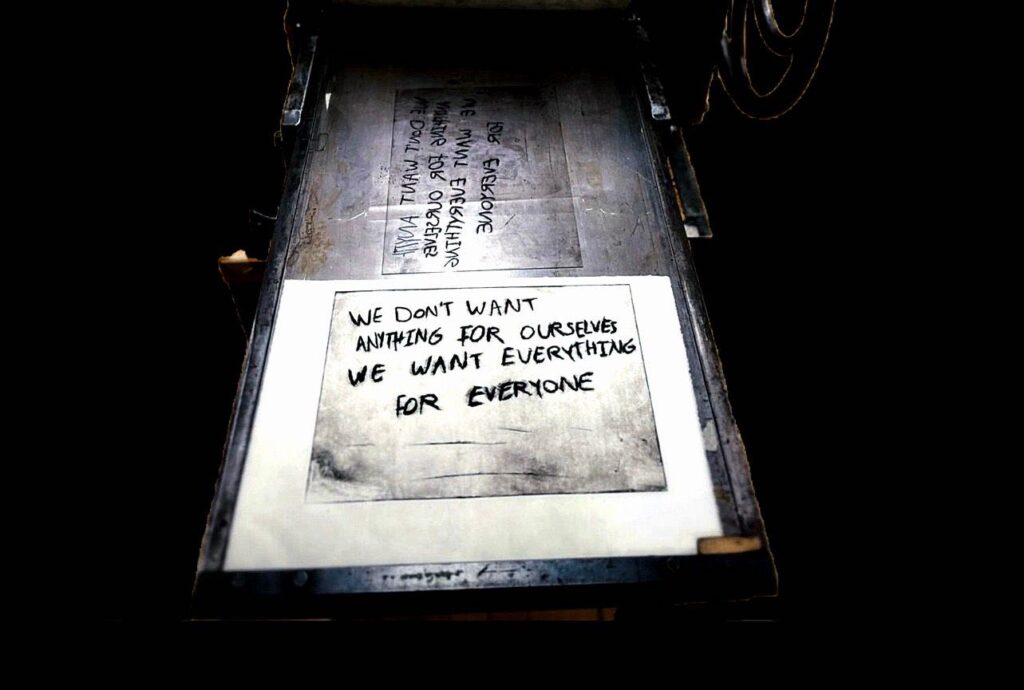 WE DON'T WANT
ANYTHING FOR OURSELVES
WE WANT EVERYTHING
FOR EVERYONE
WE DON'T WANT
ANYTHING FOR OURSELVES
WE WANT EVERYTHING
FOR EVERYONE